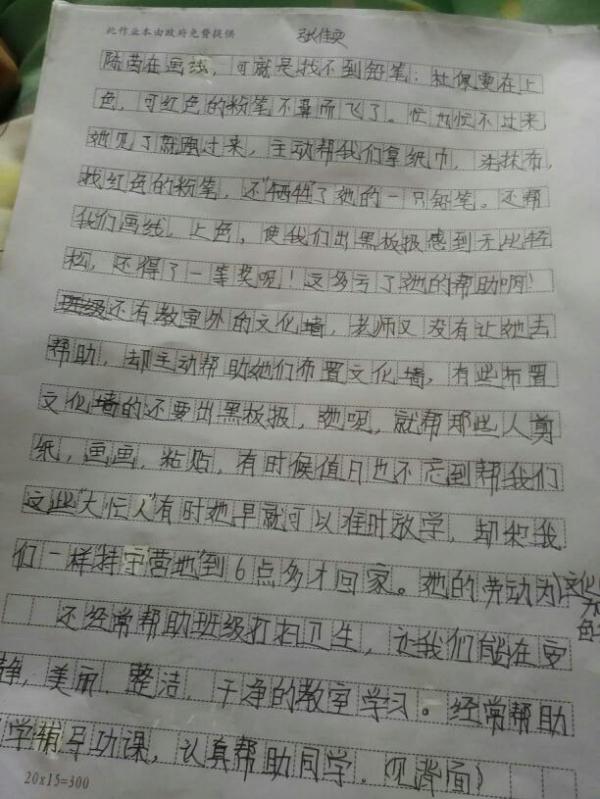 此作业本由政府免费提供
张佳
陆茵在画线，可就是找不到铅笔；杜保雯在上
色，可红色的粉笔不翼而飞了。忙忙不过来
她见了就强过来，主动帮我们拿纸巾，洗抹布，
找红色的粉笔，还"牺牲"了她的一只铅笔。还帮
我们画线，上色，使我们出黑板报感到无比轻
松，还得了一等奖呢！这多亏了她的帮助啊！
班级还有教室外的文化墙，老师又没有让她去
帮助，却主动帮助她们布置文化墙，有些布置
文化墙的还要出黑板报，她呢，就帮那些人剪
纸，画画，粘贴，有时候值日也不忘到帮我们
这些"大忙人"有时她早就可以准时放学，却和我
们一样持守营地到6点多才回家。她的劳动为
还经常帮助班级打扫卫生，让我们能在安
静，美丽、整洁、干净的教室学习。经常帮助
学辅导功课，认真帮助同学。(见背面)
20x15=300